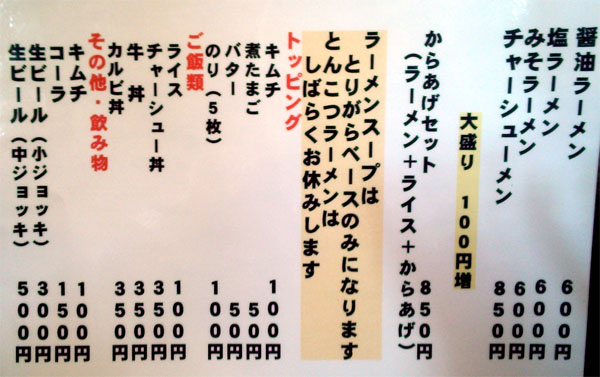 醤油ラーメン 600円
塩ラーメン 600円
みそラーメン 600円
チャーシューメン 850円
大盛り 100円増
からあげセット 850円
(ラーメン+ライス+からあげ)
ラーメンスープは
とりがらベースのみになります
とんこつラーメンは
しばらくお休みします
トッピング
キムチ 100円
煮たまご 50円
バター 50円
のり(5枚) 100円
ご飯類
ライス 100円
チャーシュー丼 350円
牛丼 350円
カルビ丼 350円
その他・飲み物
キムチ 100円
コーラ 150円
生ビール(小ジョッキ) 300円
生ビール(中ジョッキ) 500円